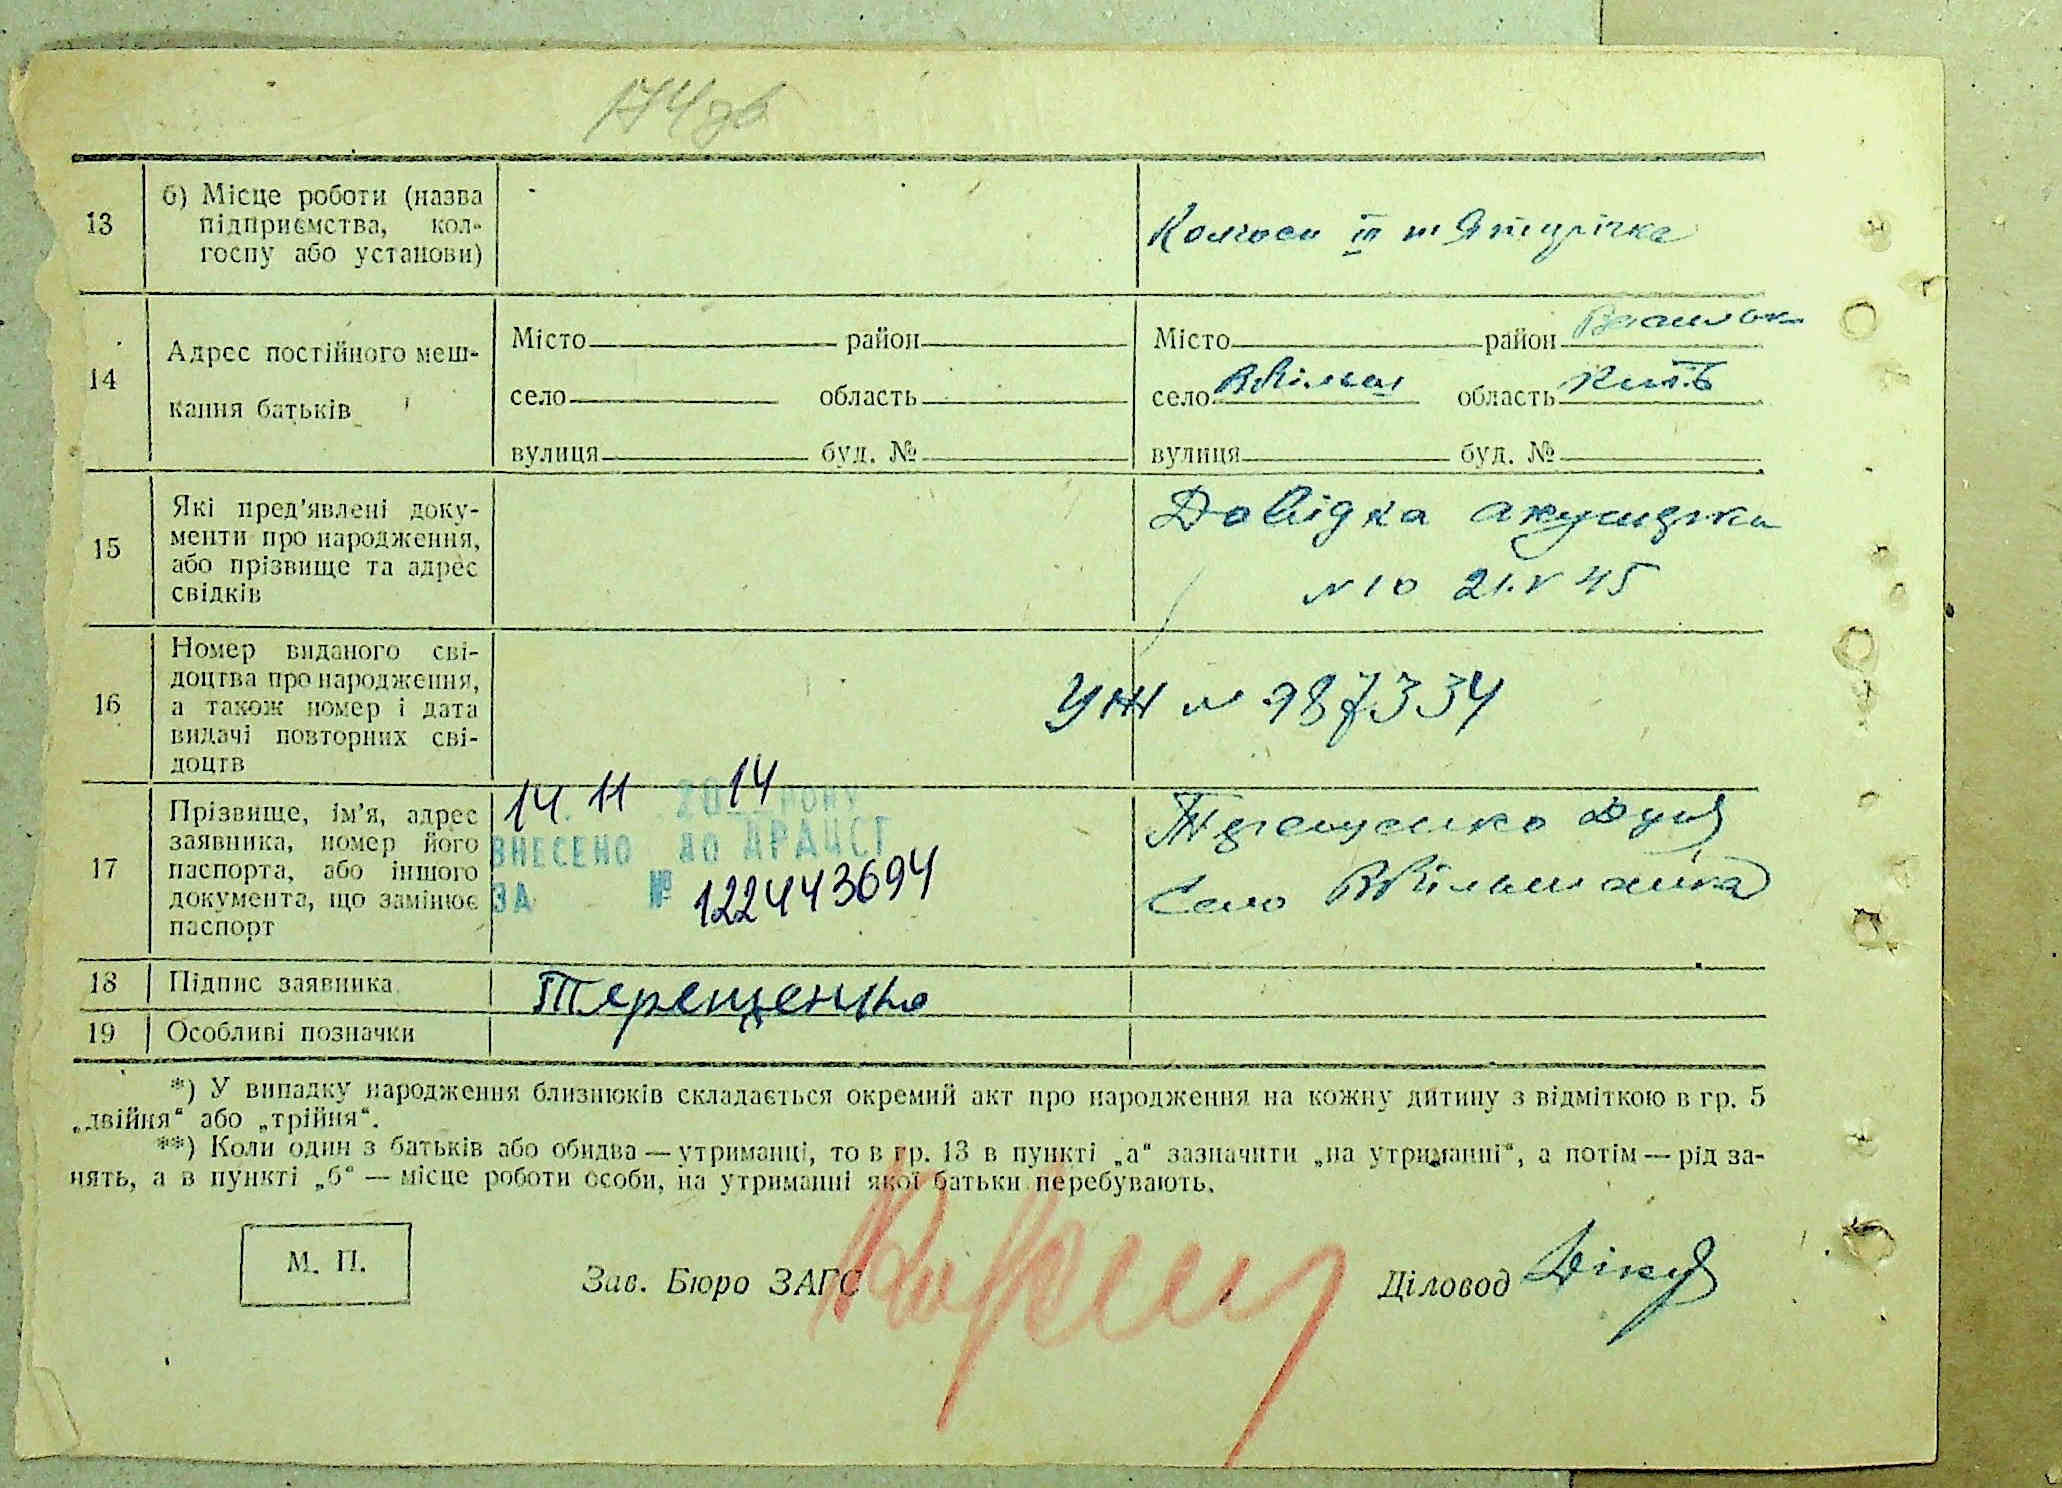 174зв
13
б) Місце роботи (назва
підприємства, кол-
госпу або установи)
Колгосп ІІІ
14
Адрес постійного меш-
кання батьків
Місто район
село область
вулиця буд. №
Місто район
село область Київ
вулиця буд. №
15
Які пред'явлені доку-
менти про народження,
або прізвище та адрес
свідків
Довідка акушерки
№ 10 21.V 45
16
Номер виданого сві-
доцтва про народження,
а також номер і дата
видачі повторних сві-
доцтв
УЖ № 987334
17
Прізвище, ім'я, адрес
заявника, номер його
паспорта, або іншого
документа, що замінює
паспорт
14. 11 2014 року
ВНЕСЕНО до ДРАЦСГ
ЗА № 122443694
Терещенко
Село
18
Підпис заявника
Терещенко
19
Особливі позначки
*) У випадку народження близнюків складається окремий акт про народження на кожну дитину з відміткою в гр. 5
„двійня“ або „трійня“.
**) Коли один з батьків або обидва — утриманці, то в гр. 13 в пункті „а“ зазначити „на утриманні“, а потім — рід за-
нять, а в пункті „б“ — місце роботи особи, на утриманні якої батьки перебувають.
М. П.
Зав. Бюро ЗАГС
Діловод